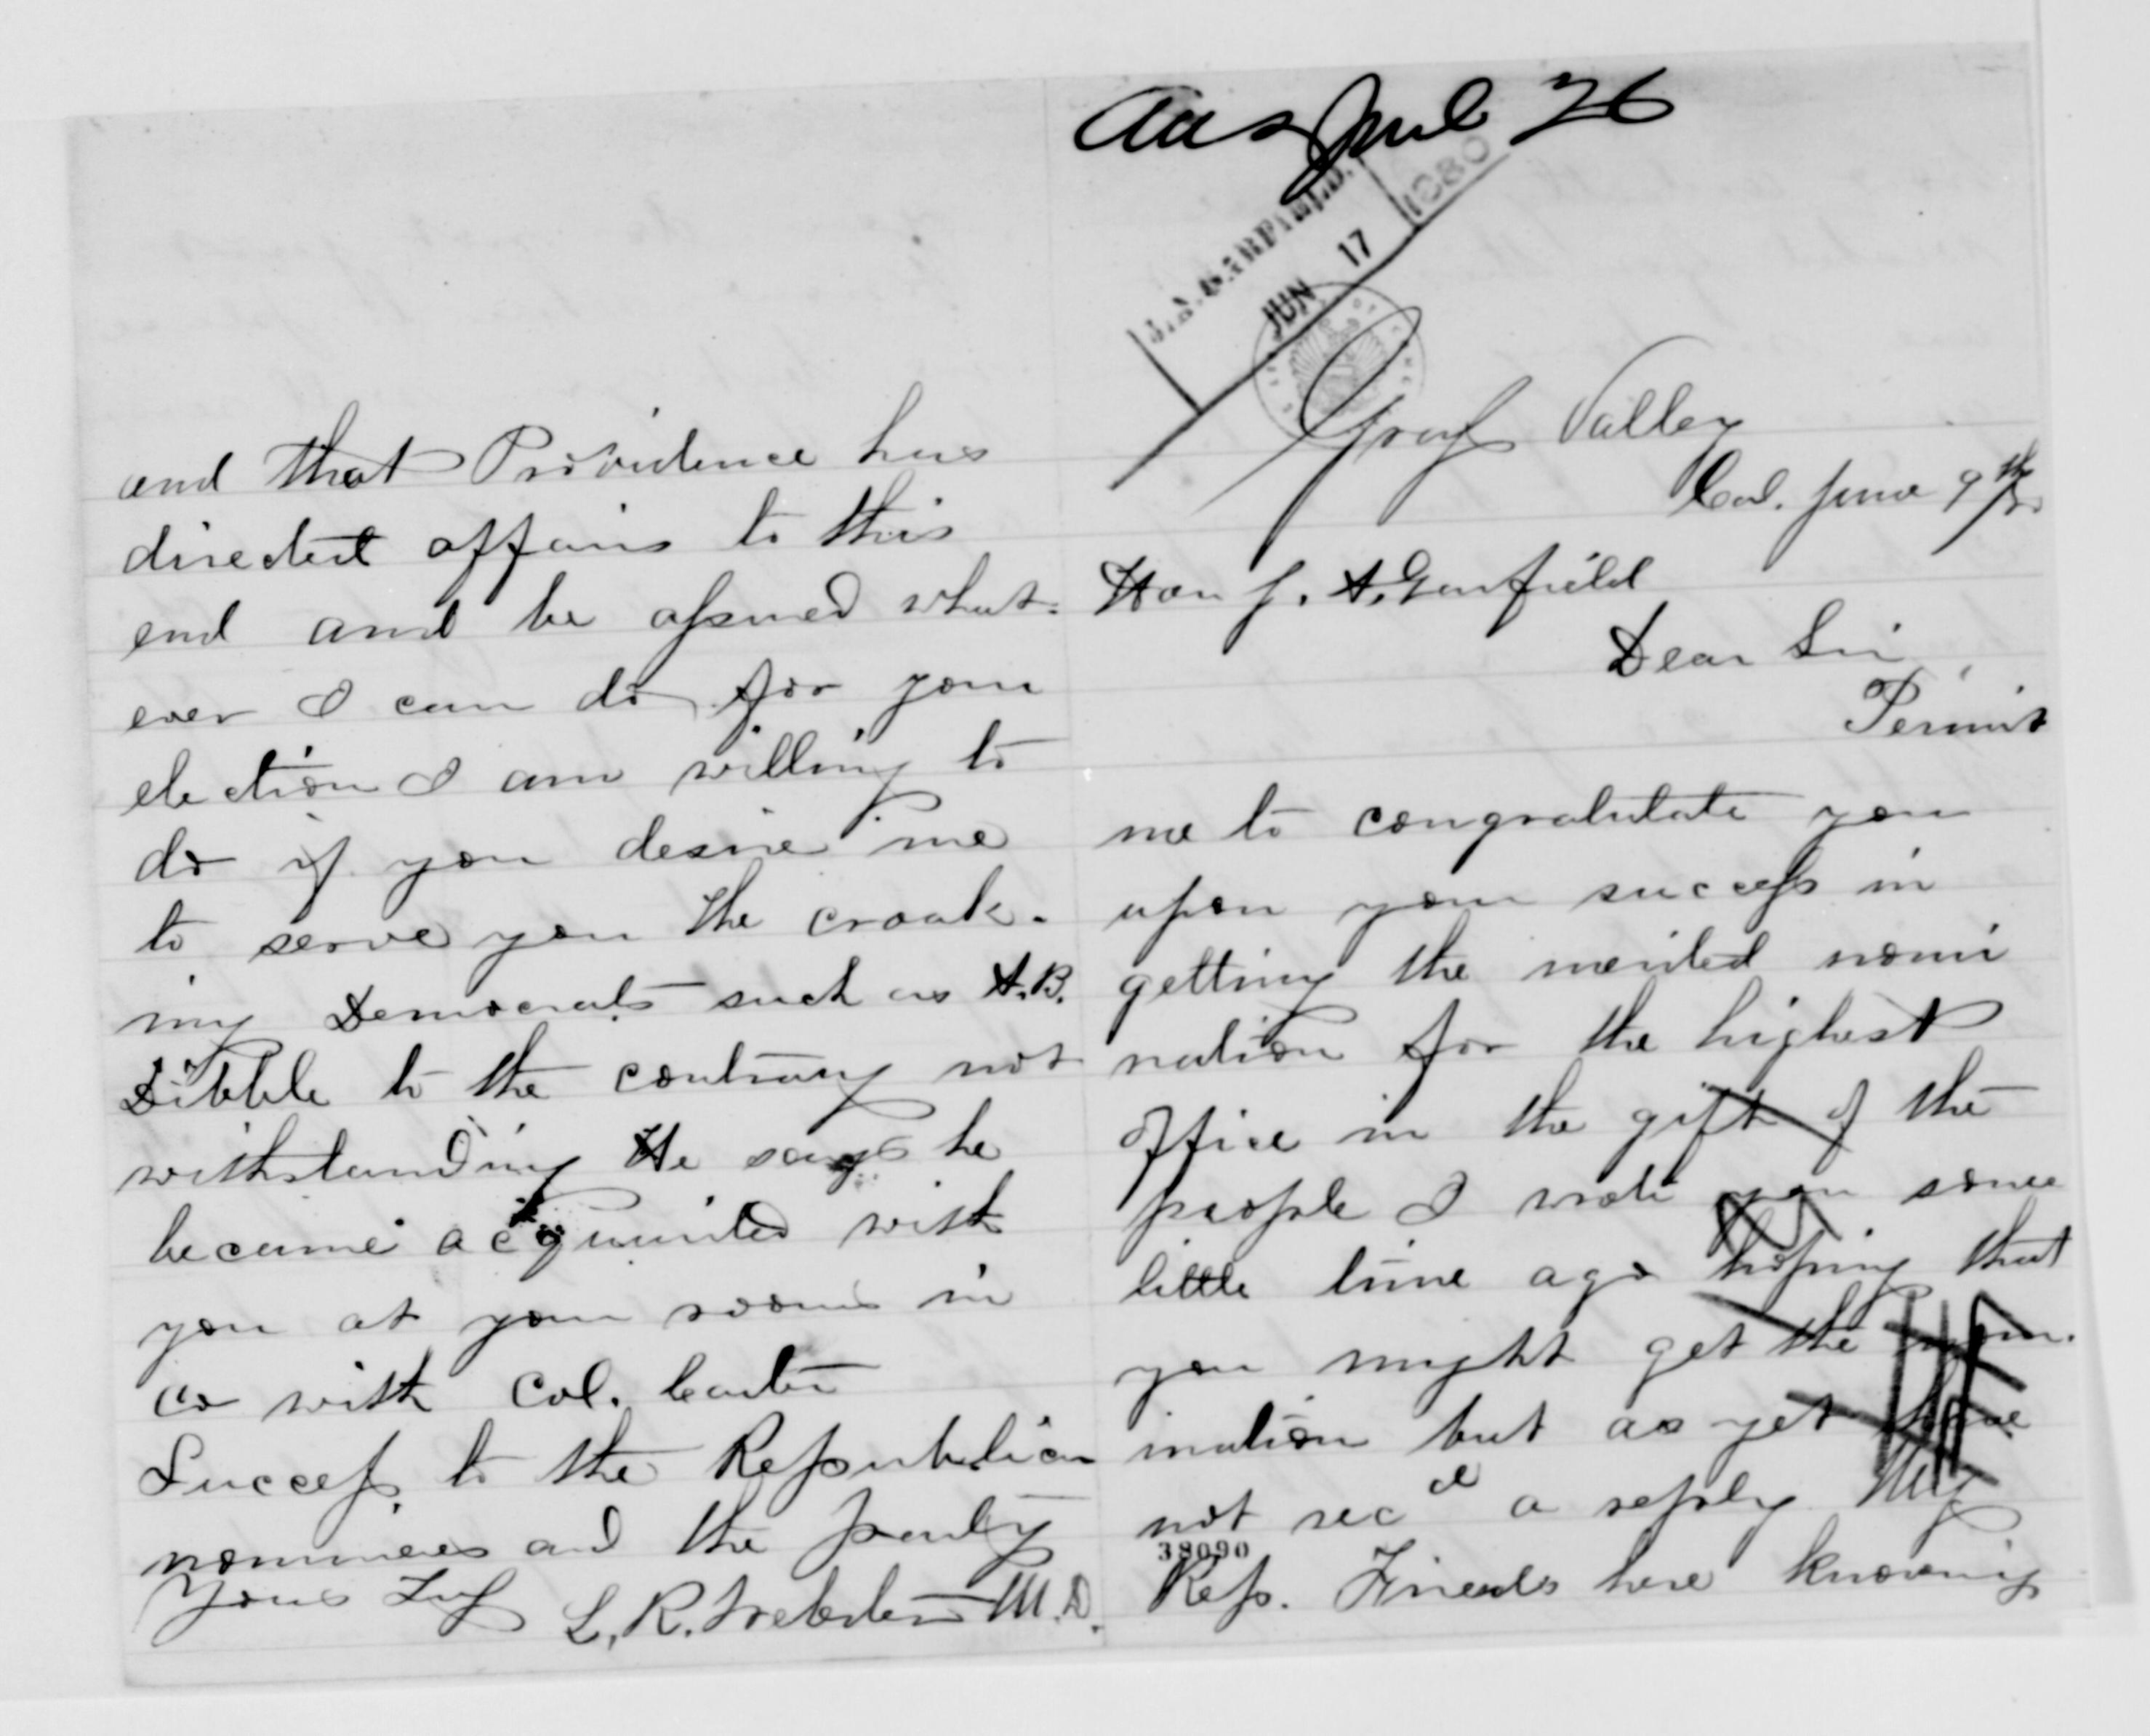 Ans June 26
J. A. GARFIELD.
JUN 17 1880
Grass Valley
Cal. June 9th
Hon J. A. Garfield
Dear Sir,
Permit
me to congratulate you
upon your success in
getting the merited nomi
nation for the highest
office in the gift of the
people I wrote you some
little time ago hoping that
you might get the nom-
ination but as yet have
not recd a reply My
38090
Rep. Friends here knowing
and that Providence has
directed affairs to this
end and be assured what-
ever I can do for your
election I am willing to
do if you desire me
to serve you the croak-
ing Democrats such as A.B.
Dibble to the contrary not
withstanding He says he
became acquainted with
you at your rooms in
co with Col. Carter
Success to the Republican
nominees and the party
Yours Truly L. R. Webster M.D.